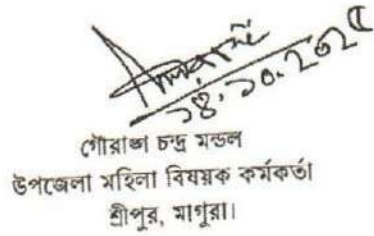 ১৪.১০.২০২৫
গৌরাঙ্গ চন্দ্র মন্ডল
উপজেলা মহিলা বিষয়ক কর্মকর্তা
শ্রীপুর, মাগুরা।